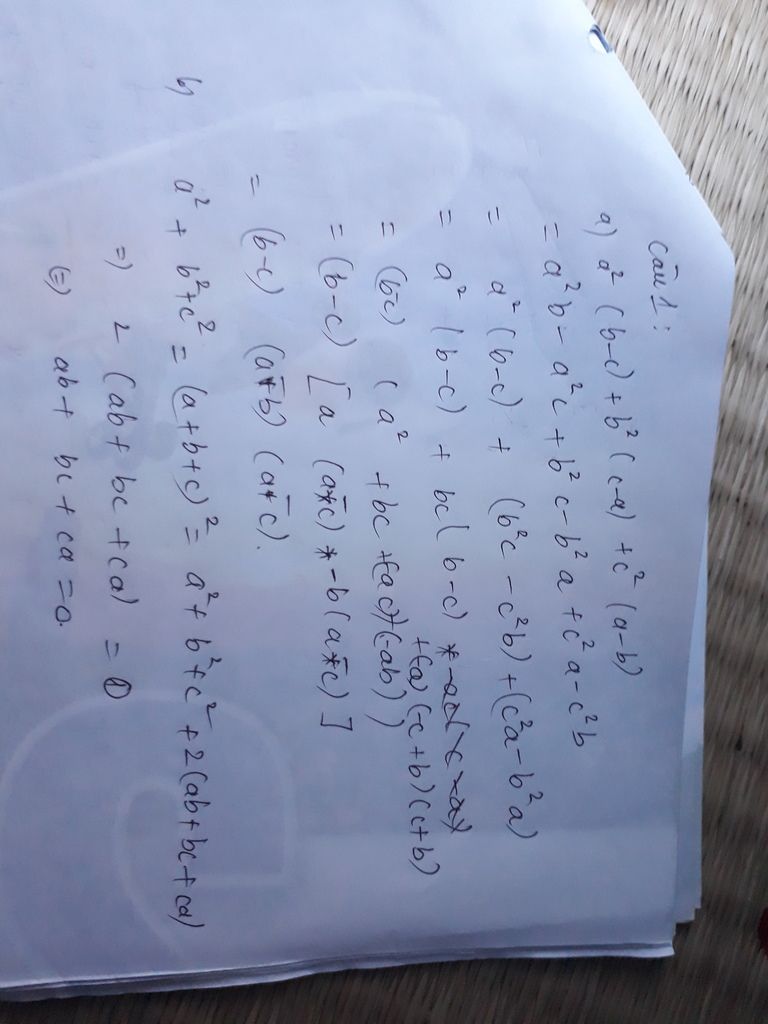 Câu 1:
a) a² (b-c) + b² (c-a) + c² (a-b)
= a²b - a²c + b²c - b²a + c²a - c²b
= a² (b-c) + (b²c - c²b) + (c²a - b²a)
= a² (b-c) + bc (b-c)
+(a) (-c+b) (c+b)
= (b-c) ( a² + bc +(-ac)+(-ab) )
= (b-c) [ a (a-c) - b (a-c) ]
= (b-c) (a-b) (a-c).
b) a² + b²+c² = (a+b+c)² = a² + b²+c² + 2(ab+bc+ca)
=) 2 (ab + bc + ca) = 0
(=) ab + bc + ca = 0.